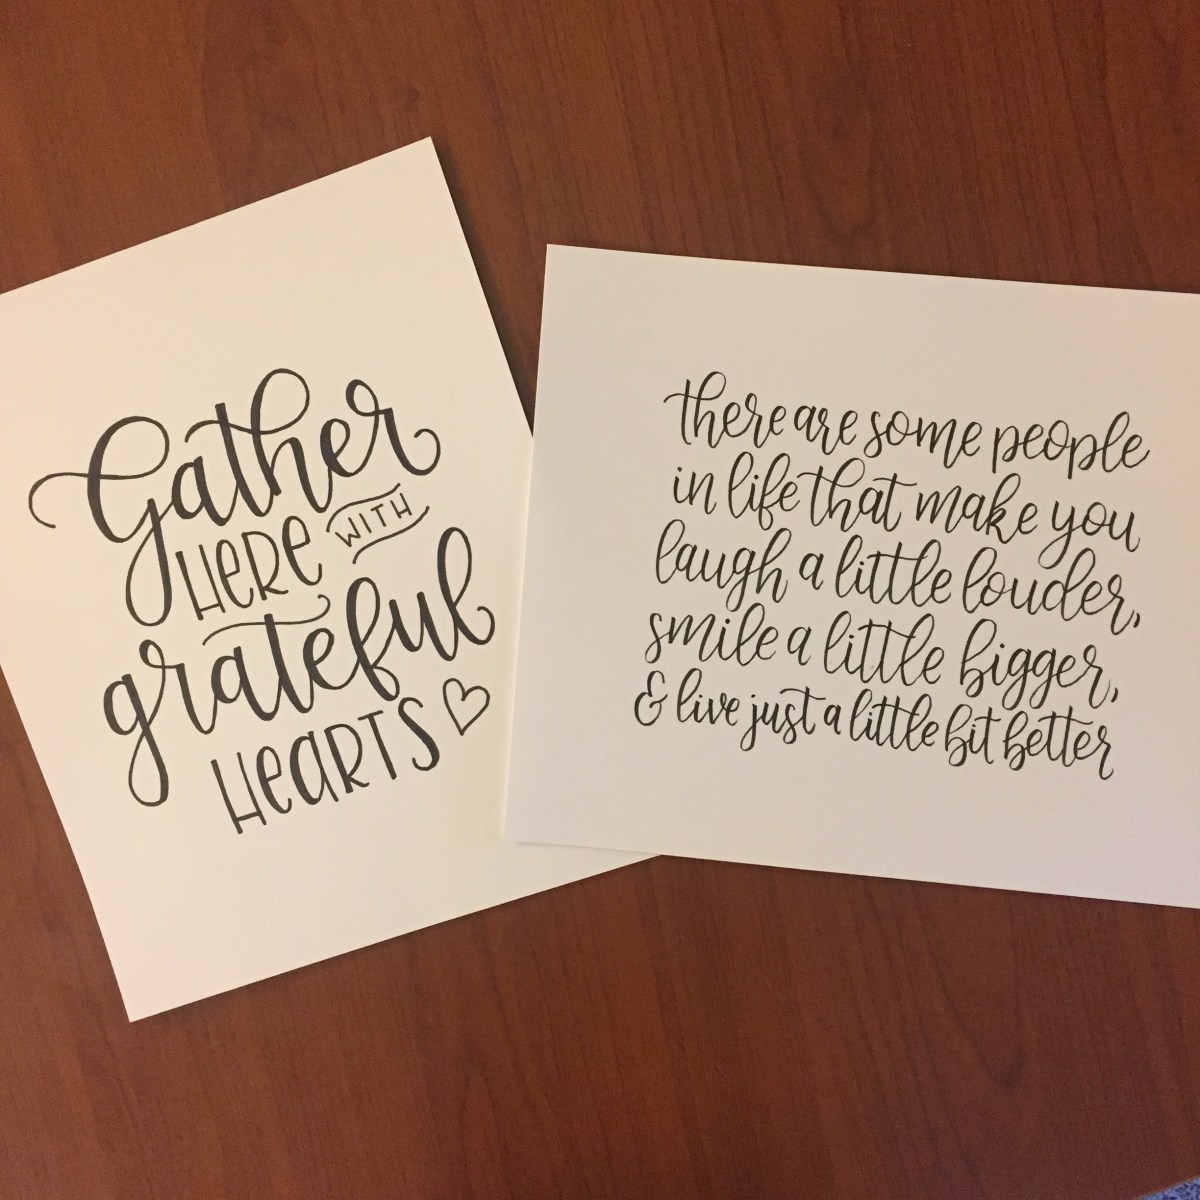 Gather
HERE WITH
grateful
HEARTS
there are some people
in life that make you
laugh a little louder,
smile a little bigger,
& live just a little bit better